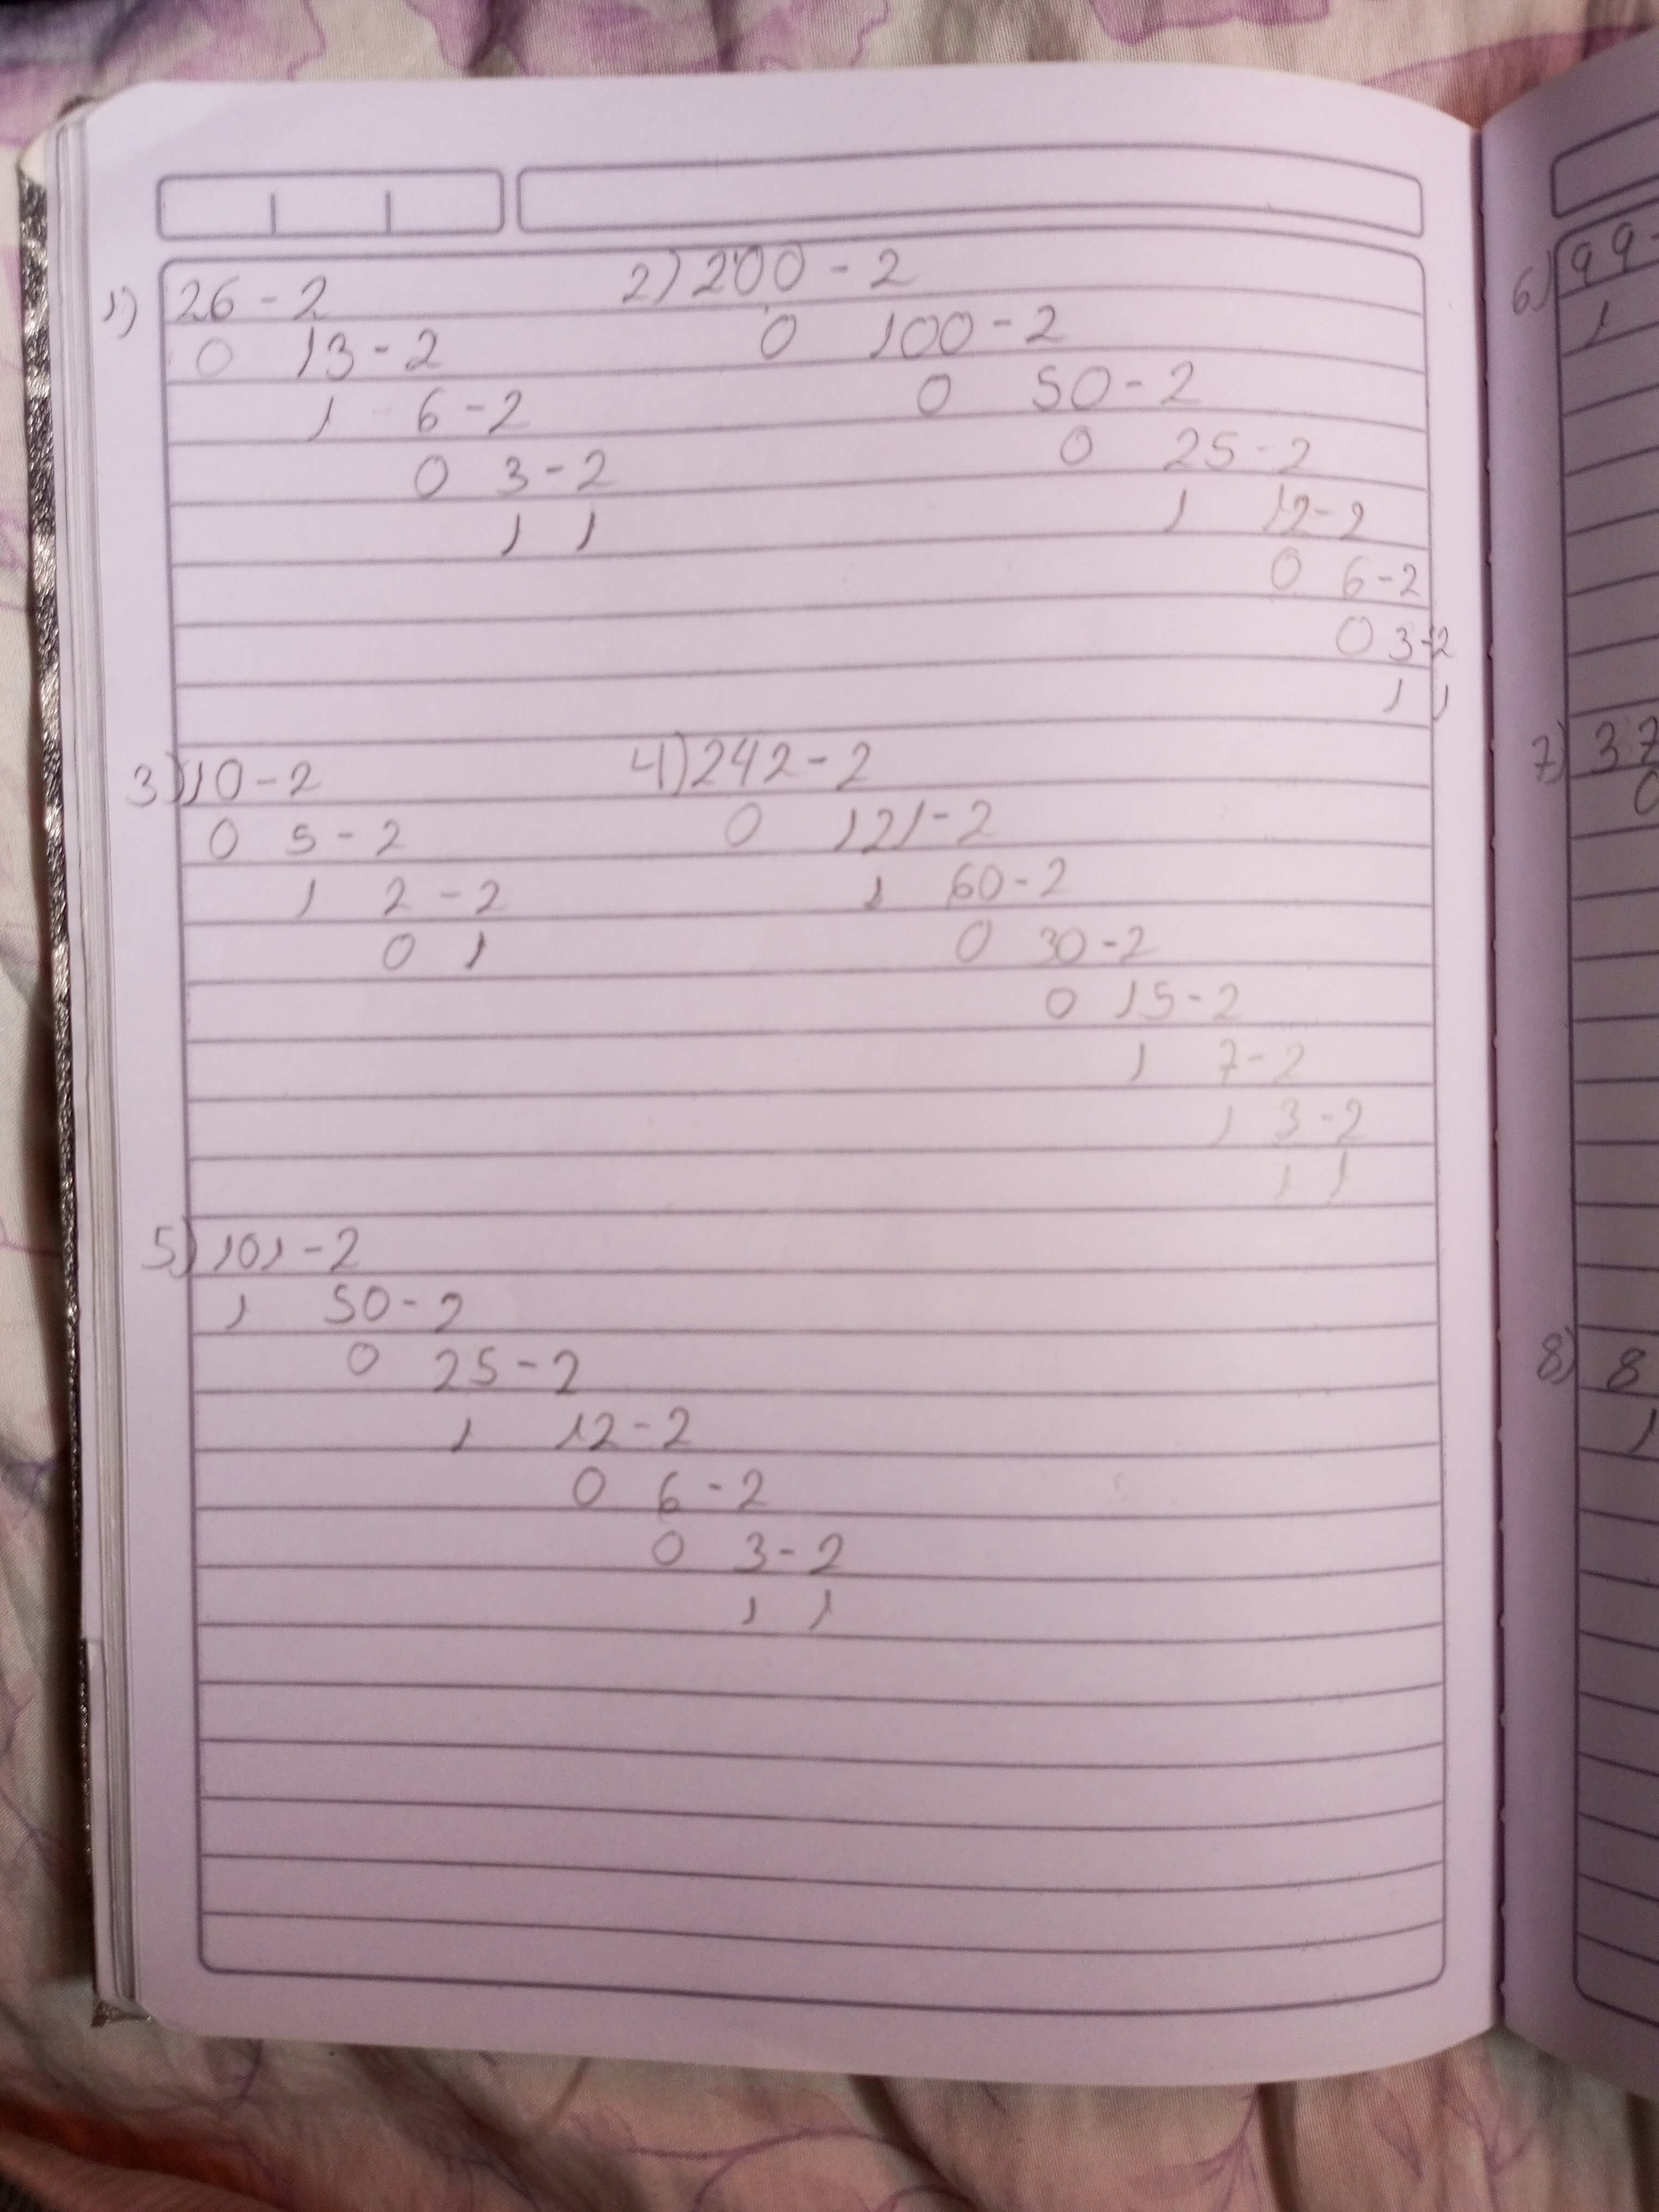 1) 26-2
0 13-2
1 6-2
0 3-2
1 1
2) 200-2
0 100-2
0 50-2
0 25-2
1 12-2
0 6-2
0 3-2
1 1
3) 10-2
0 5-2
1 2-2
0 1
4) 242-2
0 121-2
1 60-2
0 30-2
0 15-2
1 7-2
1 3-2
1 1
5) 101-2
1 50-2
0 25-2
1 12-2
0 6-2
0 3-2
1 1
6) 99-
1
7) 37
0
8) 8
1